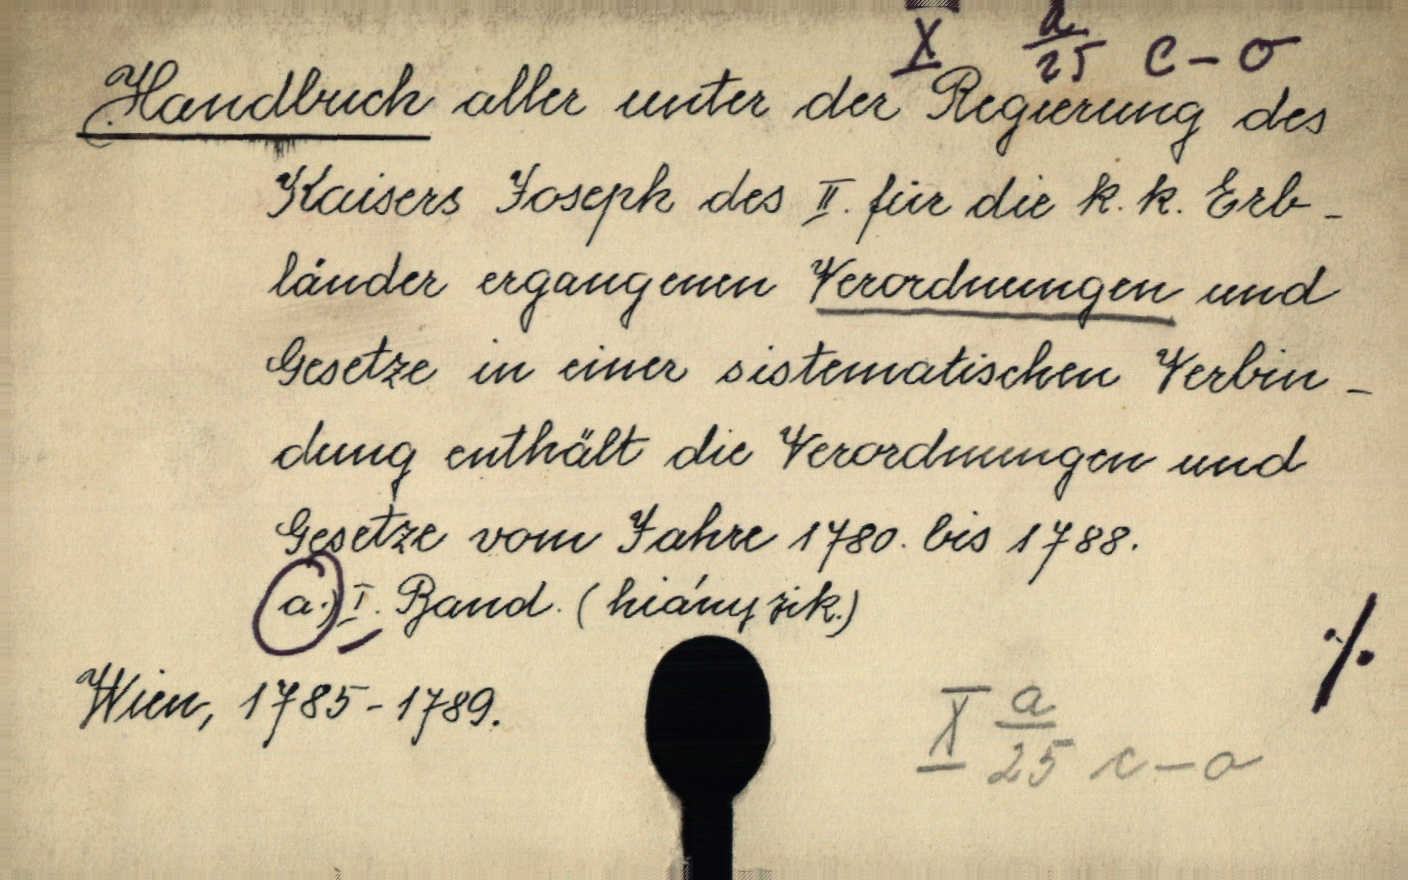 X a/25 c-o
Handbuch aller unter der Regierung des
Kaisers Joseph des II. für die k. k. Erb-
länder ergangenen Verordnungen und
Gesetze in einer sistematischen Verbin-
dung enthält die Verordnungen und
Gesetze vom Jahre 1780. bis 1788.
a.) I. Band. (hiányzik.)
Wien, 1785-1789.
./.
X a/25 c-o